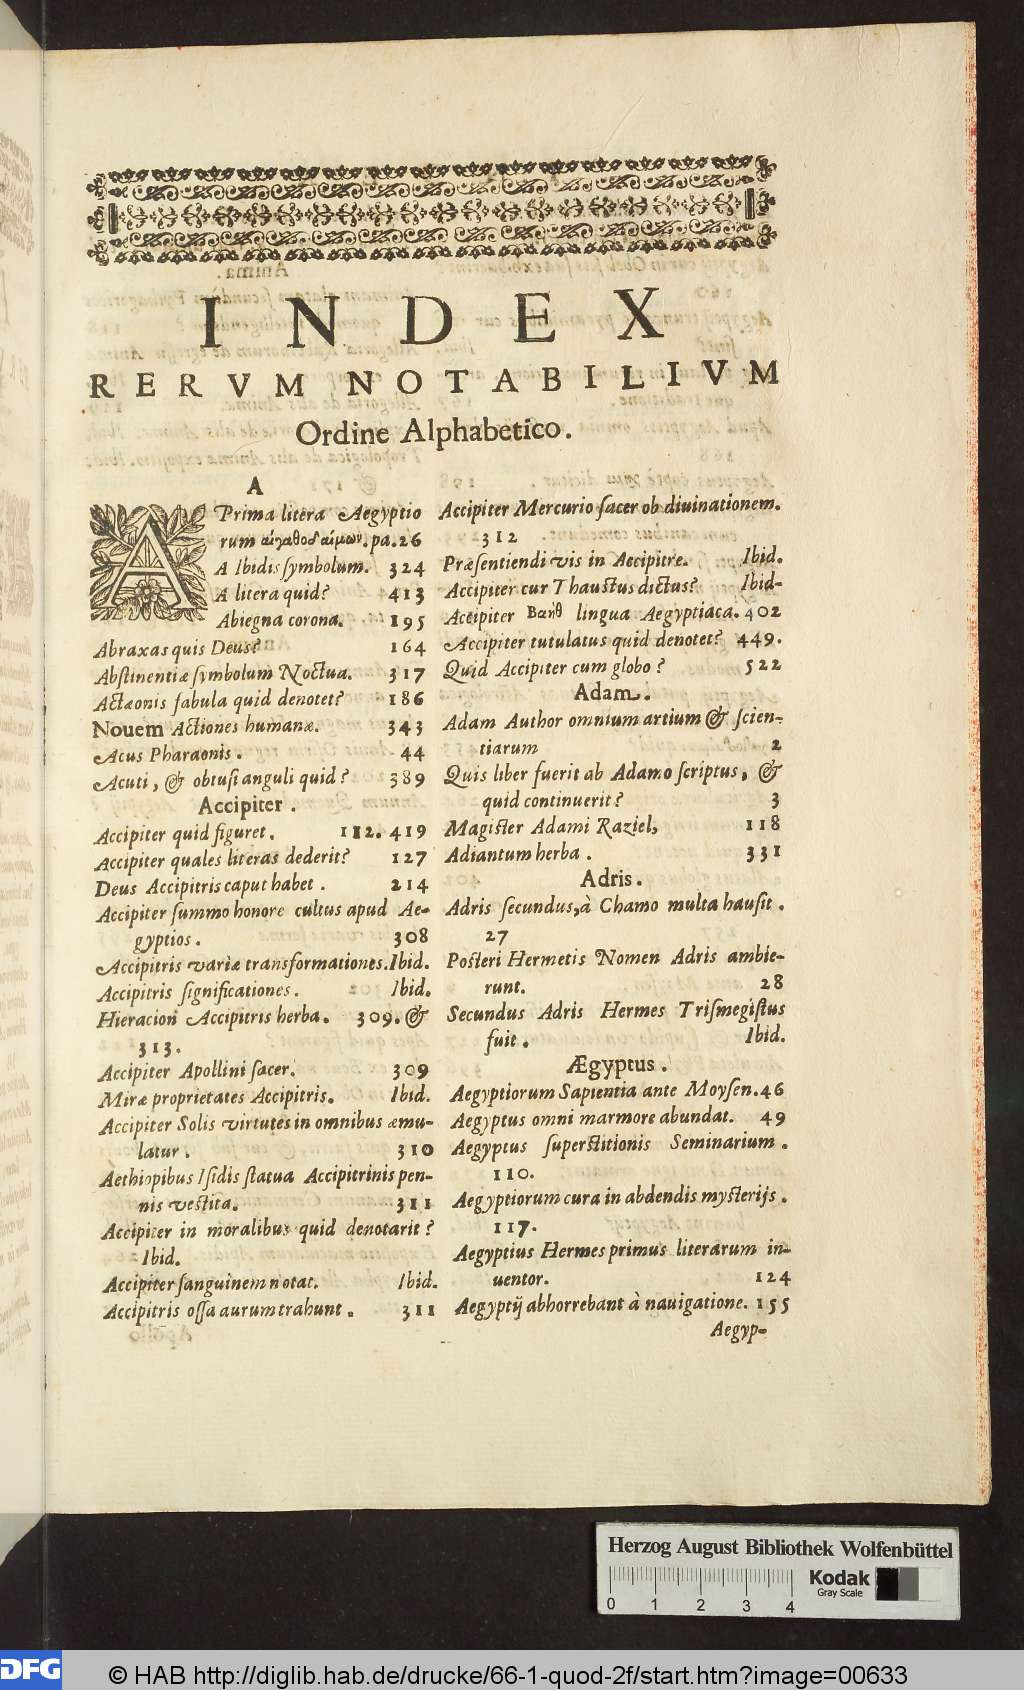 INDEX
RERVM NOTABILIVM
Ordine Alphabetico.
A
A Prima litera Aegyptio
rum αἰγαθοδαίμων. pa. 26
A Ibidis ſymbolum. 324
A litera quid? 413
Abiegna corona. 195
Abraxas quis Deus? 164
Abſtinentiæ ſymbolum Noctua. 317
Actæonis fabula quid denotet? 186
Nouem Actiones humanæ. 343
Acus Pharaonis. 44
Acuti, & obtuſi anguli quid? 389
Accipiter.
Accipiter quid figuret. 112. 419
Accipiter quales literas dederit? 127
Deus Accipitris caput habet. 214
Accipiter ſummo honore cultus apud Ae-
gyptios. 308
Accipitris variæ transformationes. Ibid.
Accipitris ſignificationes. Ibid.
Hieracion Accipitris herba. 309. &
313.
Accipiter Apollini ſacer. 309
Miræ proprietates Accipitris. Ibid.
Accipiter Solis virtutes in omnibus æmu-
latur. 310
Aethiopibus Iſidis ſtatua Accipitrinis pen-
nis veſtita. 311
Accipiter in moralibus quid denotarit?
Ibid.
Accipiter ſanguinem notat. Ibid.
Accipitris oſſa aurum trahunt. 311
Accipiter Mercurio ſacer ob diuinationem.
312
Præſentiendi vis in Accipitre. Ibid.
Accipiter cur Thauſtus dictus? Ibid-
Accipiter Βαηθ lingua Aegyptiaca. 402
Accipiter tutulatus quid denotet? 449.
Quid Accipiter cum globo? 522
Adam.
Adam Author omnium artium & ſcien-
tiarum 2
Quis liber fuerit ab Adamo ſcriptus, &
quid continuerit? 3
Magiſter Adami Raziel, 118
Adiantum herba. 331
Adris.
Adris ſecundus, à Chamo multa hauſit.
27
Poſteri Hermetis Nomen Adris ambie-
runt. 28
Secundus Adris Hermes Triſmegiſtus
fuit. Ibid.
Ægyptus.
Aegyptiorum Sapientia ante Moyſen. 46
Aegyptus omni marmore abundat. 49
Aegyptus ſuperſtitionis Seminarium.
110.
Aegyptiorum cura in abdendis myſterijs.
117.
Aegyptius Hermes primus literarum in-
uentor. 124
Aegyptij abhorrebant à nauigatione. 155
Aegyp-
Herzog August Bibliothek Wolfenbüttel
Kodak
Gray Scale
0 1 2 3 4
DFG
© HAB http://diglib.hab.de/drucke/66-1-quod-2f/start.htm?image=00633